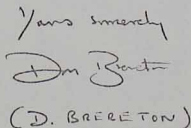 Yours sincerely
Don Brereton
(D. BRERETON)